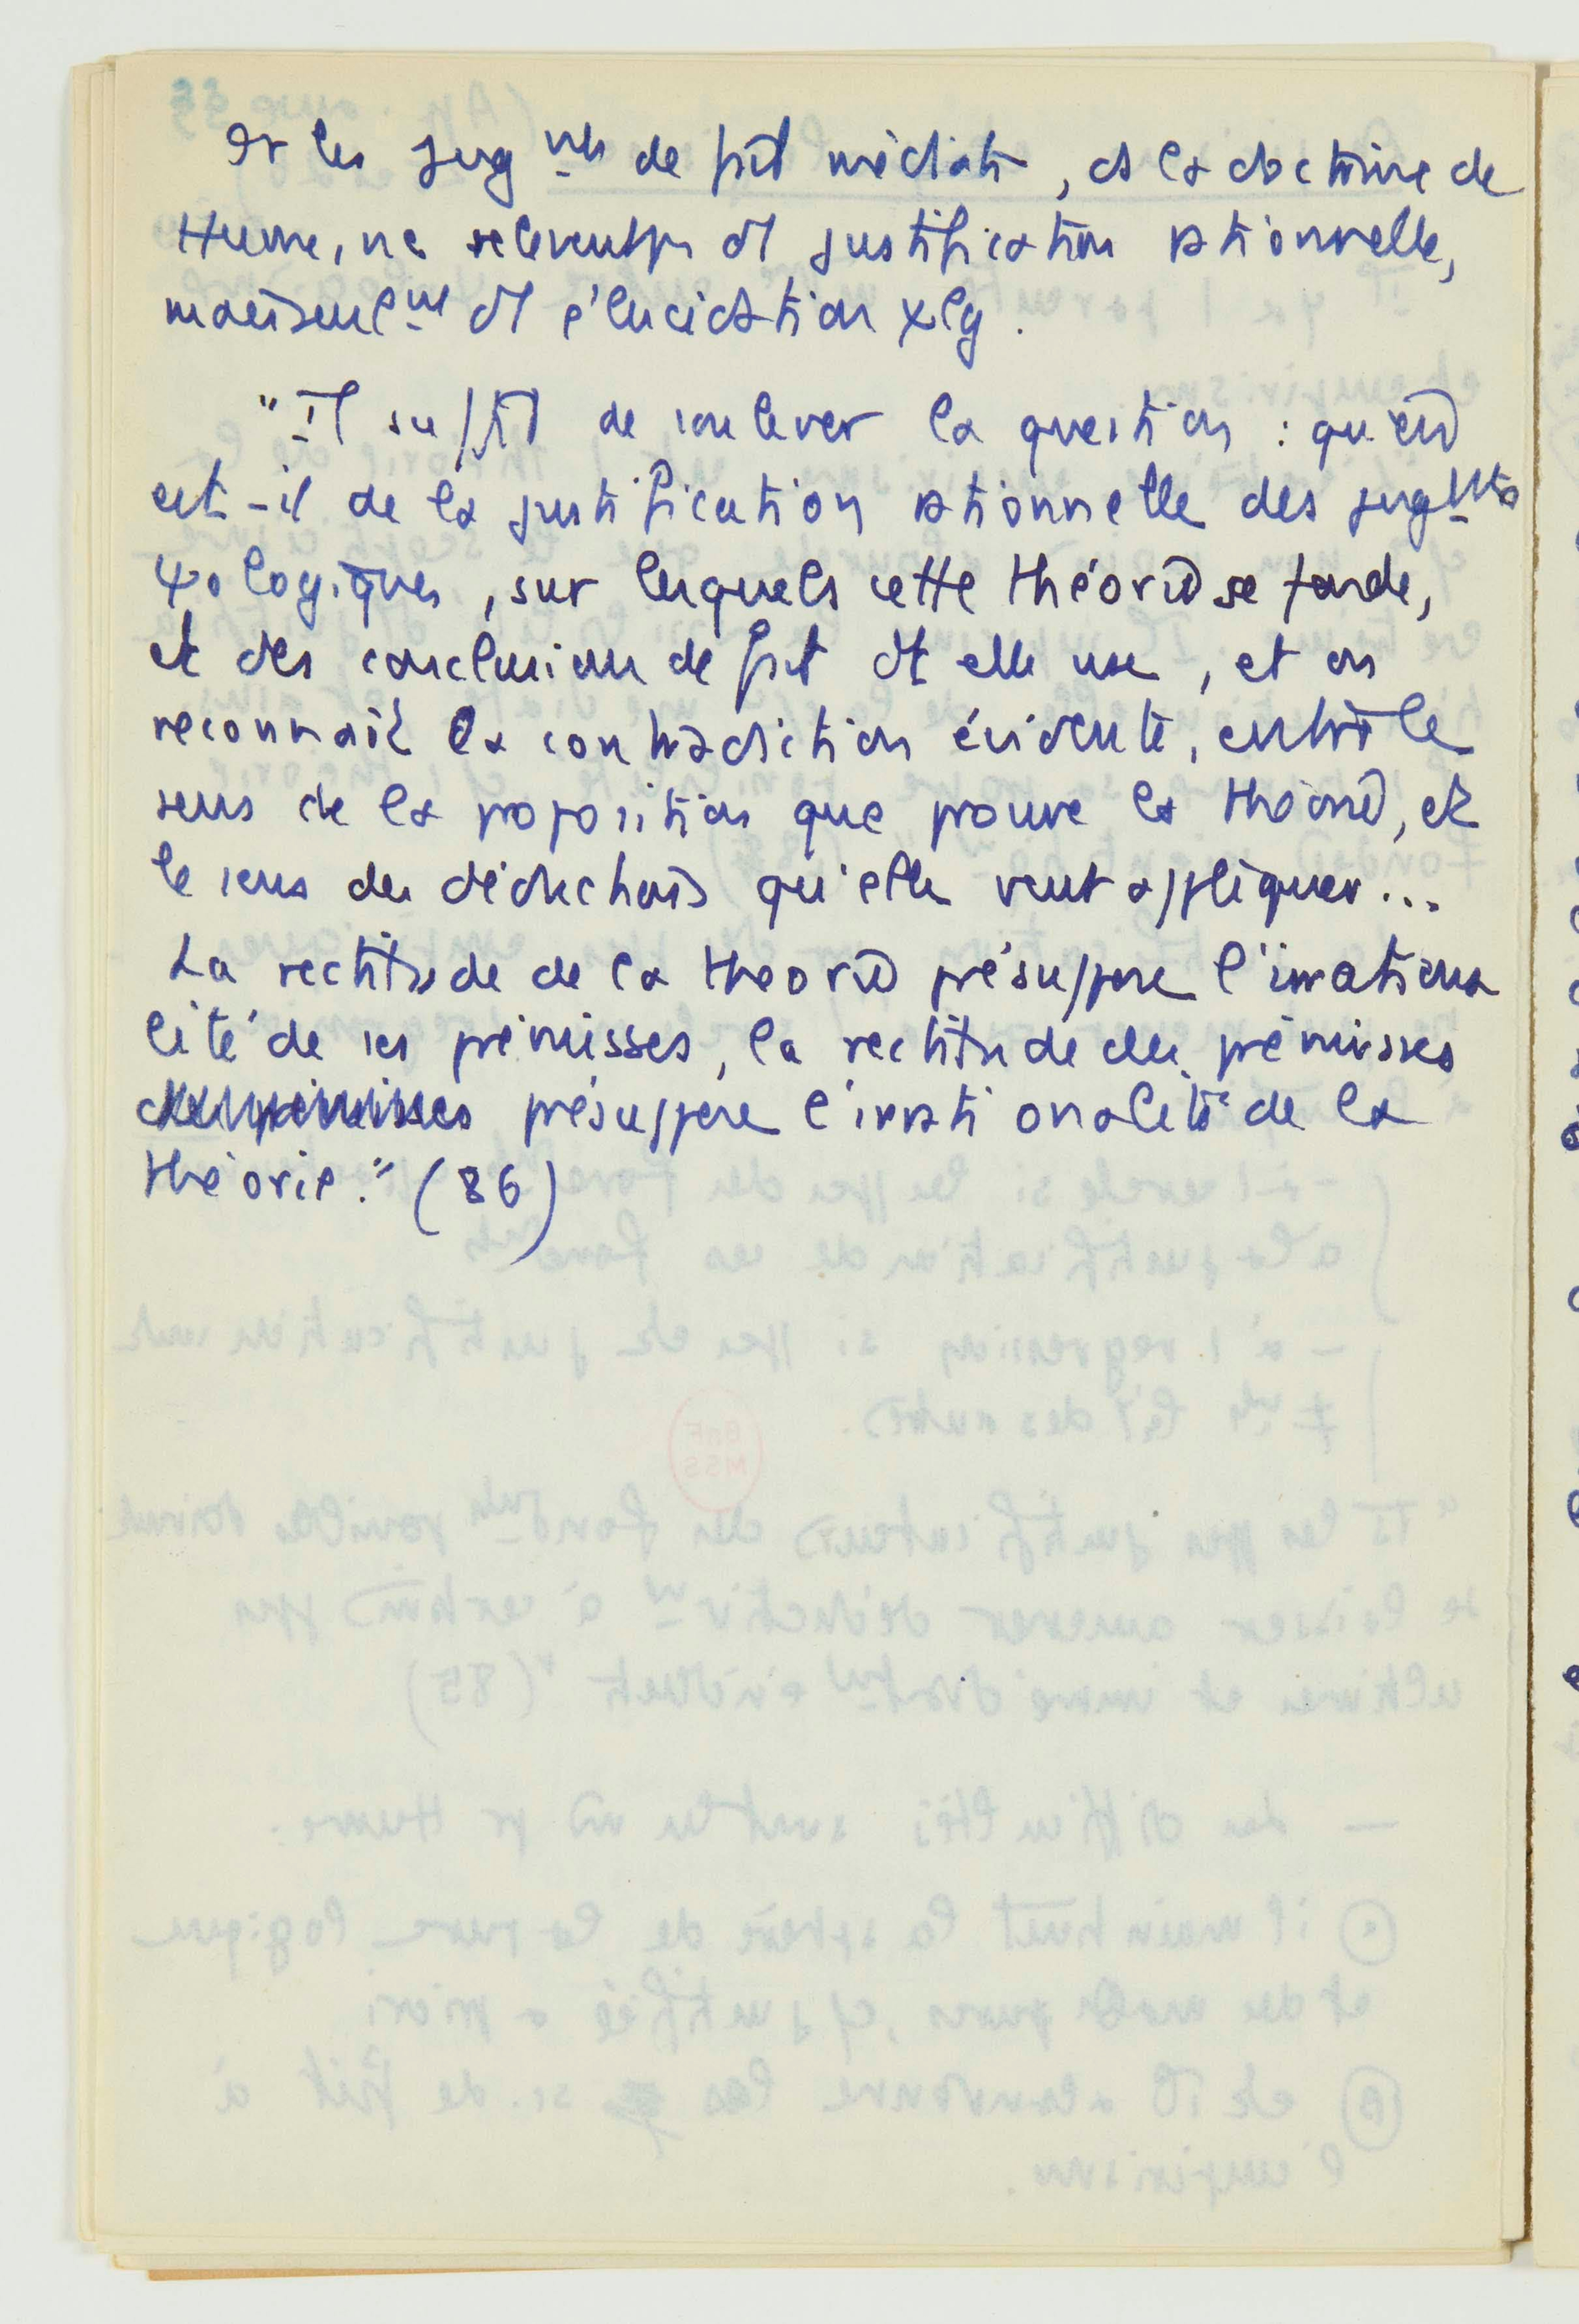 Or les jug^mts de fait médiats, ds la doctrine de
Hume, ne relèvent pas d'1 justification rationnelle,
mais seulem^nt d'1 élucidation ψlg.
"Il suffit de soulever la question : qu'en
est-il de la justification rationnelle des jug^mts
ψologiques, sur lesquels cette théorie se fonde,
et des conclusions de fait dt elle use, et on
reconnaît la contradiction évidente, entre le
sens de la proposition que prouve la théorie, et
le sens des déductions qu'elle veut appliquer...
La rectitude de la théorie présuppose l'irrationa
lité de ses prémisses, la rectitude des prémisses
présuppose l'irrationalité de la
théorie." (86)